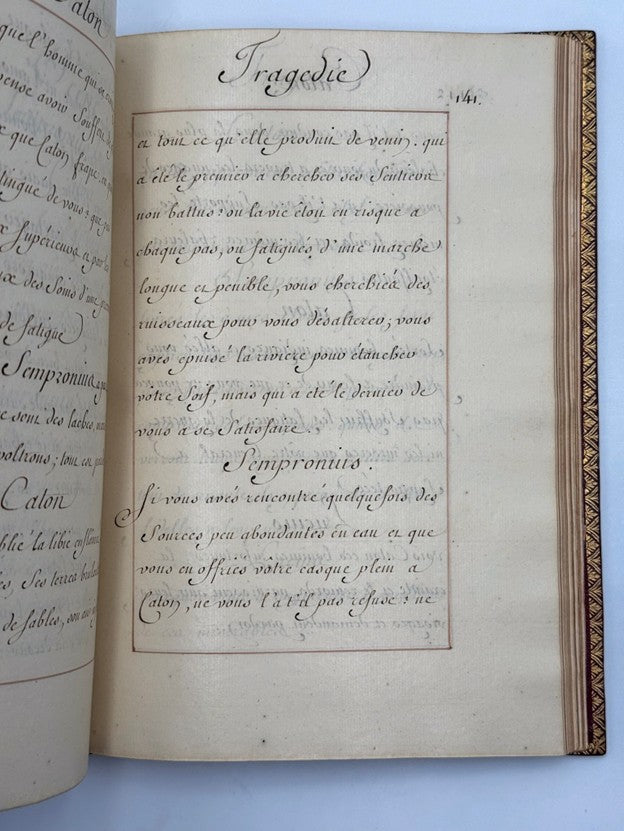 Caton
que l'homme qui
pense avoir Souffert
que Caton
tingué de vous; que
Supérieurs et par
aux des Soins d'une
de fatigue
Sempronius
ne sont des laches,
poltrons; tout est
Caton
blié la libie
Ses terres
de sables, son
Tragedie
141.
et tout ce qu'elle produit de venin. qui
a èté le premier a chercher ses Sentiers
non battus: ou la vie étoit en risque a
chaque pas, ou fatigués d'une marche
longue et penible, vous cherchiez des
ruisseaux pour vous desalterer; vous
avés epuisé la riviere pour étancher
votre Soif, mais qui a èté le dernier de
vous a se Satisfaire.
Sempronius.
Si vous avés rencontré quelquefois des
Sources peu abondantes en eau et que
vous en offries votre casque plein a
Caton, ne vous l'a t'il pas refusé: ne